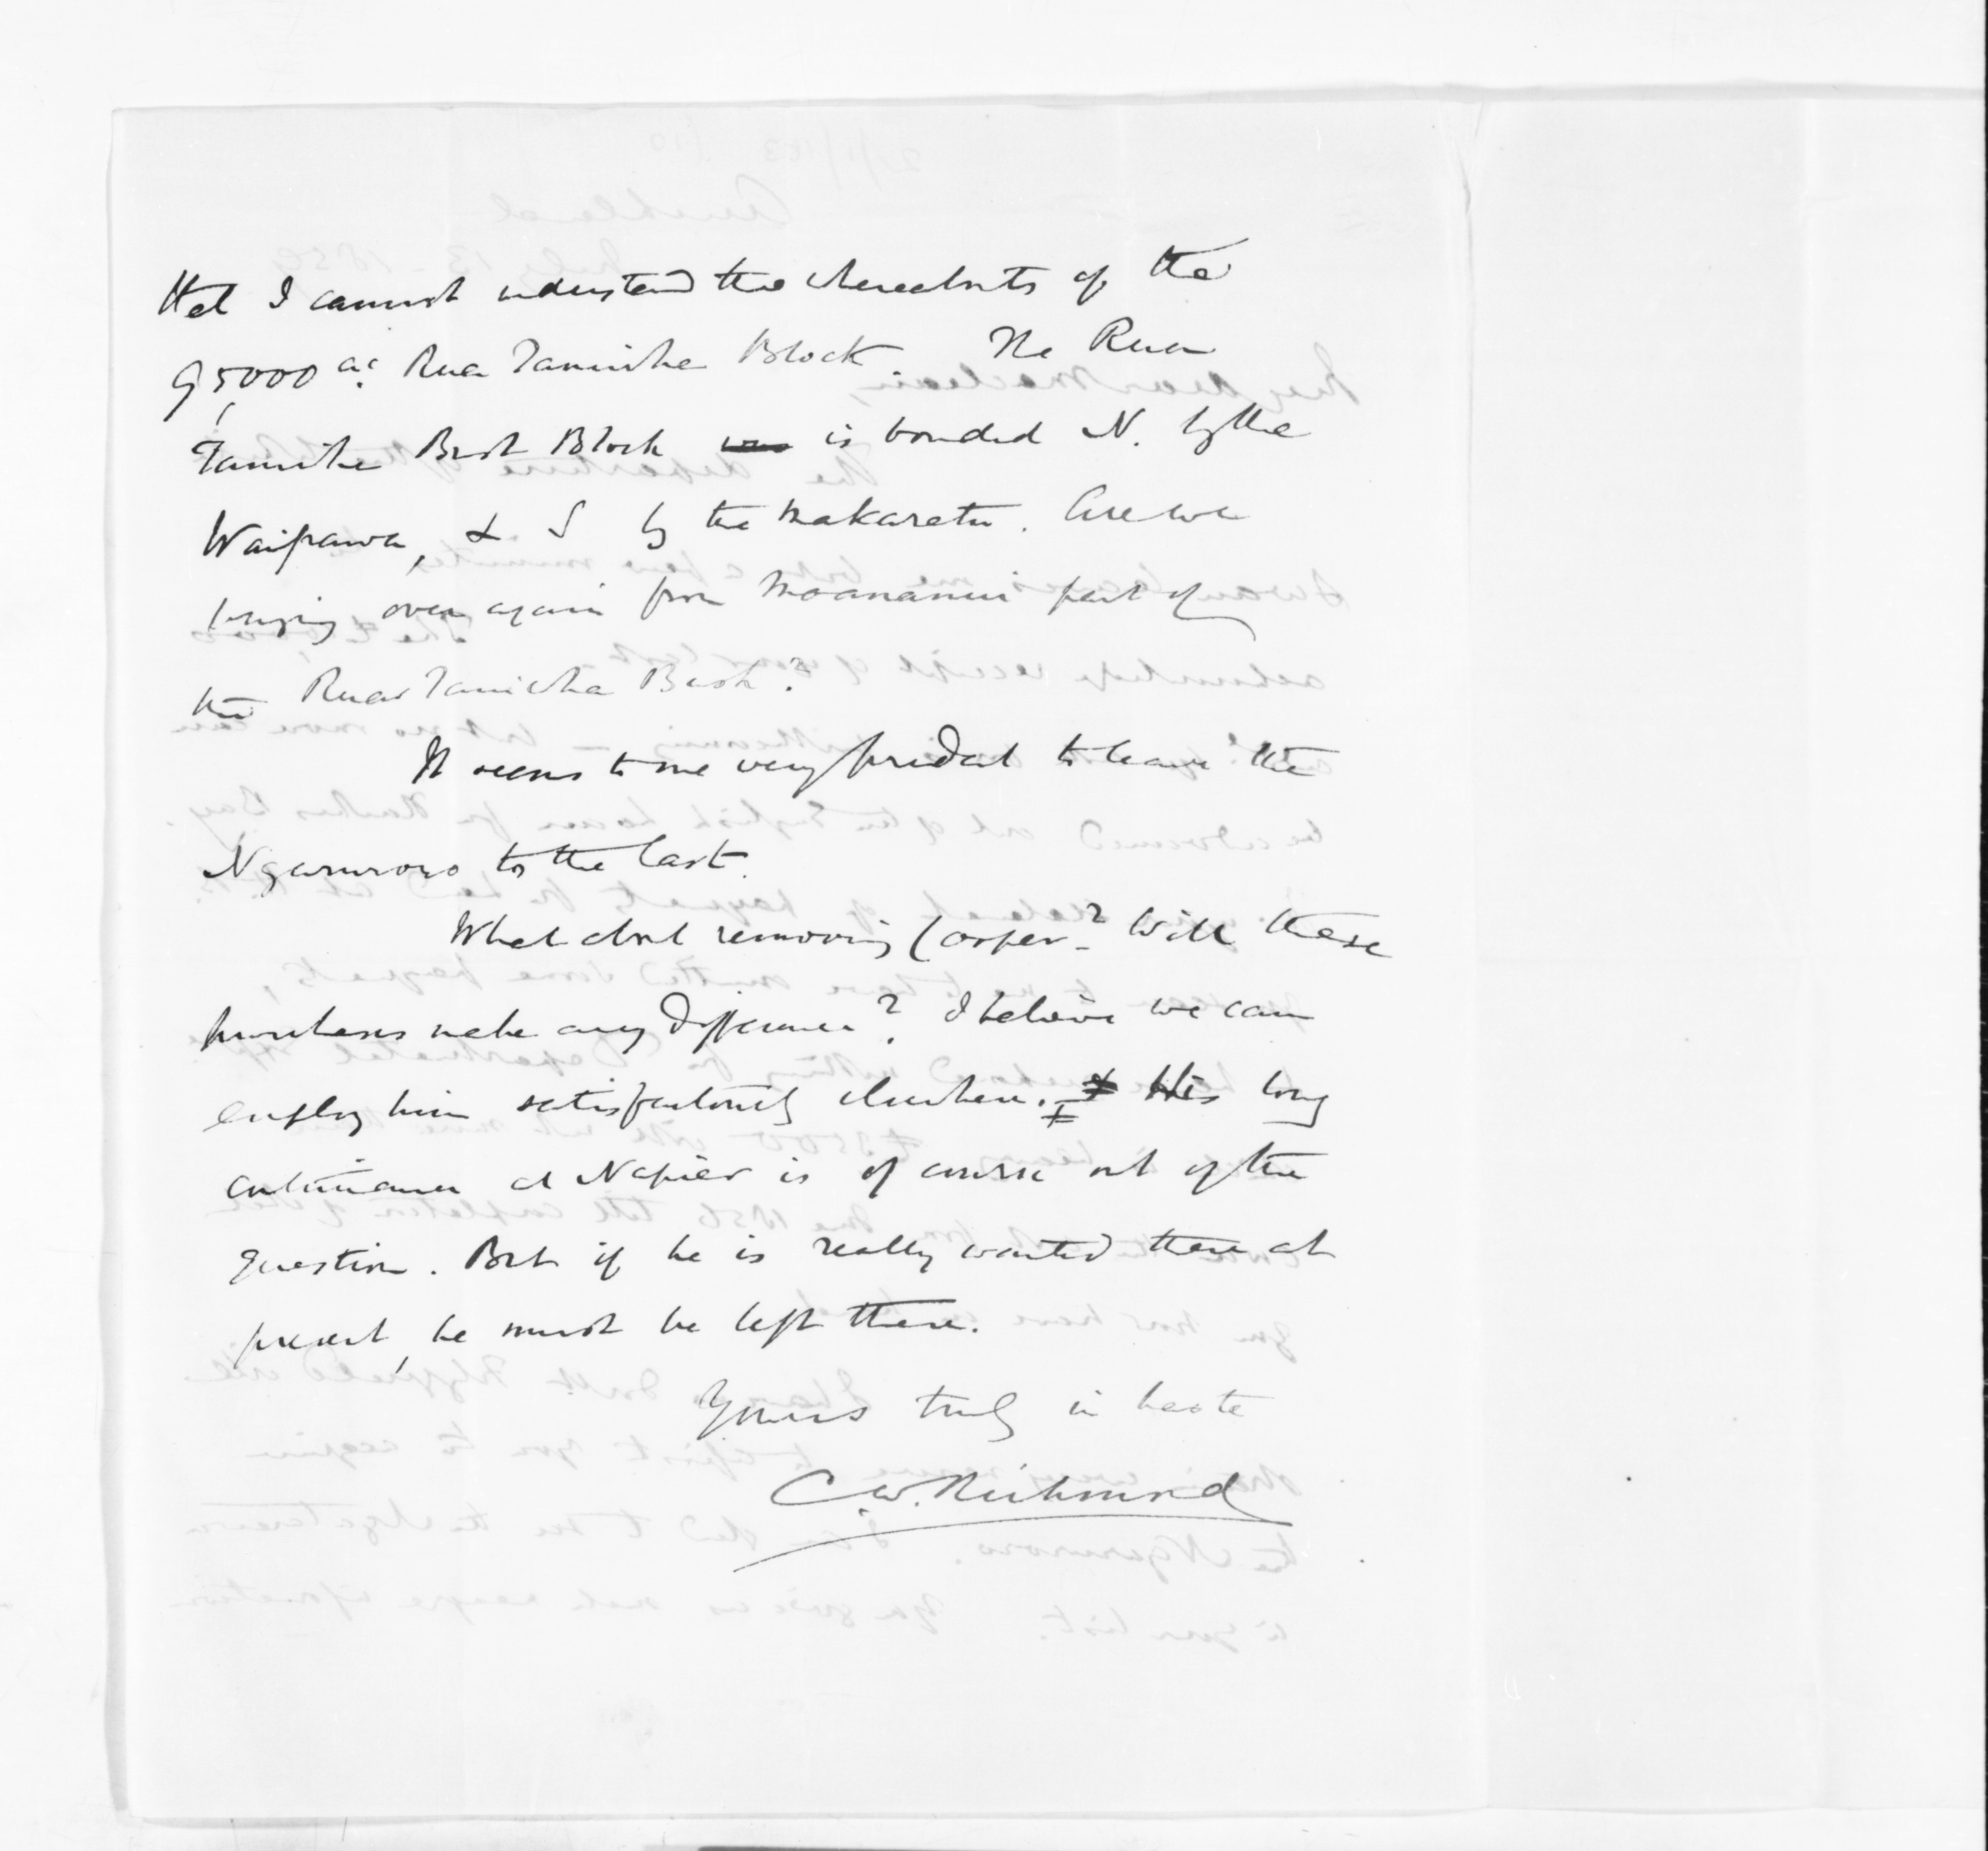 that I cannot understand the whereabouts of the
95,000 ac. Rua Taniwha Block. The Rua
Taniwha Bush Block was is bounded N. by the
Waipawa, & S by the Makaretu. Are we
buying over again from Moananui part of
the Rua Taniwha Bush?
It seems to me very prudent to leave the
Ngaruroro to the last.
What about removing Cooper? Will these
purchases make any difference? I believe we can
employ him satisfactorily elsewhere. His long
continuance at Napier is of course out of the
question. But if he is really wanted there at
present, he must be left there.
Yours truly in haste
C.W. Richmond